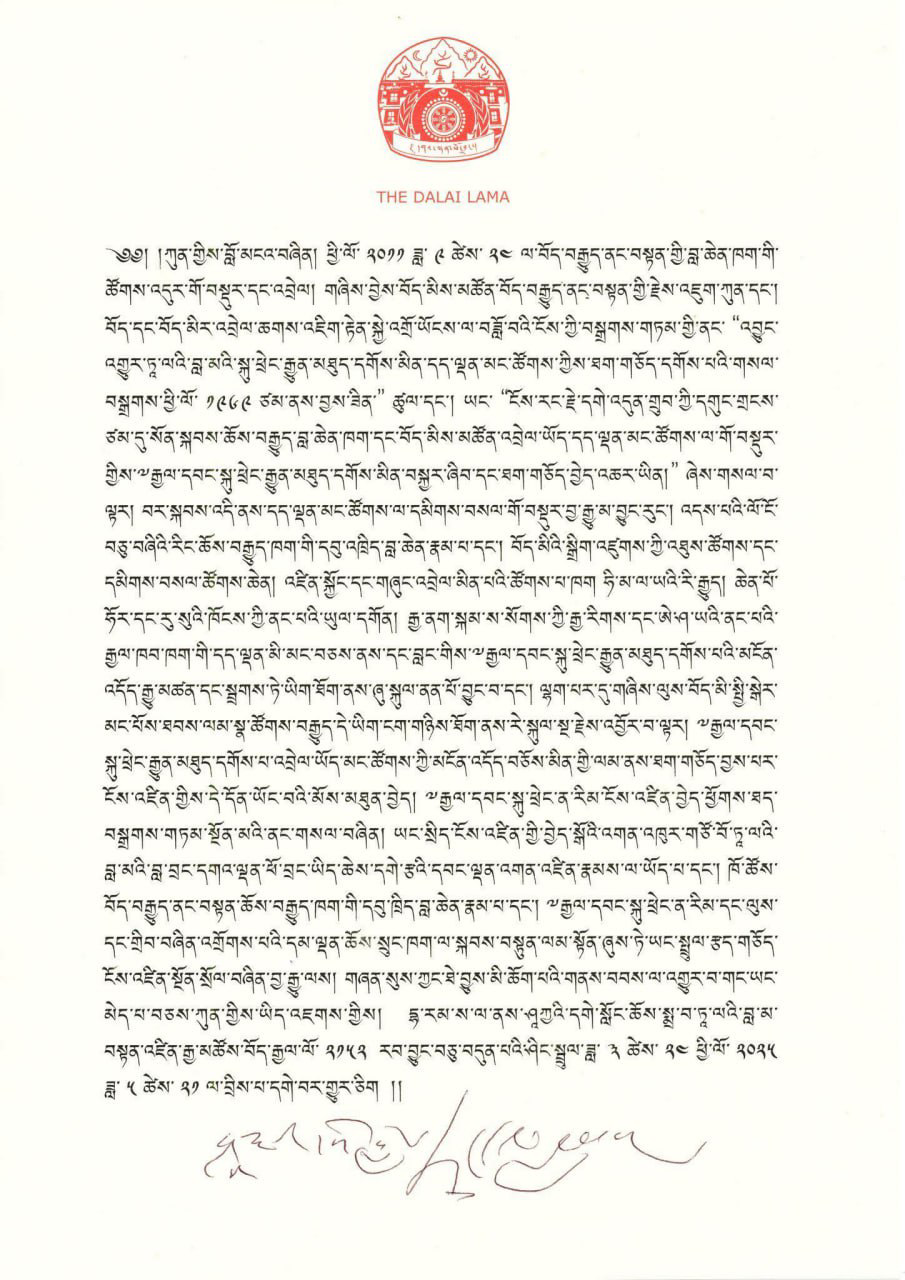 THE DALAI LAMA
༄༅། །ཀུན་གྱིས་བློ་མངའ་བཞིན། ཕྱི་ལོ་ ༢༠༡༡ ཟླ་ ༩ ཚེས་ ༢༤ ལ་བོད་བརྒྱུད་ནང་བསྟན་གྱི་བླ་ཆེན་ཁག་གི་
ཚོགས་འདུར་གོ་བསྡུར་དང་འབྲེལ། གཞིས་བྱེས་བོད་མིས་མཚོན་བོད་བརྒྱུད་ནང་བསྟན་གྱི་རྗེས་འཇུག་ཀུན་དང་།
བོད་དང་བོད་མིར་འབྲེལ་ཆགས་འཇིག་རྟེན་སྐྱེ་འགྲོ་ཡོངས་ལ་བཟློ་བའི་ངོས་ཀྱི་བསྒྲགས་གཏམ་གྱི་ནང་ “འབྱུང་
འགྱུར་ཏཱ་ལའི་བླ་མའི་སྐུ་ཕྲེང་རྒྱུན་མཐུད་དགོས་མིན་དད་ལྡན་མང་ཚོགས་ཀྱིས་ཐག་གཅོད་དགོས་པའི་གསལ་
བསྒྲགས་ཕྱི་ལོ་ ༡༩༦༩ ཙམ་ནས་བྱས་ཟིན་” ཚུལ་དང་། ཡང་ “ངོས་རང་རྗེ་དགེ་འདུན་གྲུབ་ཀྱི་དགུང་གྲངས་
ཙམ་དུ་སོན་སྐབས་ཆོས་བརྒྱུད་བླ་ཆེན་ཁག་དང་བོད་མིས་མཚོན་འབྲེལ་ཡོད་དད་ལྡན་མང་ཚོགས་ལ་གོ་བསྡུར་
གྱིས་༸རྒྱལ་དབང་སྐུ་ཕྲེང་རྒྱུན་མཐུད་དགོས་མིན་བསྐྱར་ཞིབ་དང་ཐག་གཅོད་བྱེད་འཆར་ཡིན།” ཞེས་གསལ་བ་
ལྟར། བར་སྐབས་འདི་ནས་དད་ལྡན་མང་ཚོགས་ལ་དམིགས་བསལ་གོ་བསྡུར་བྱ་རྒྱུ་མ་བྱུང་རུང་། འདས་པའི་ལོ་ངོ་
བཅུ་བཞིའི་རིང་ཆོས་བརྒྱུད་ཁག་གི་དབུ་འཁྲིད་བླ་ཆེན་རྣམ་པ་དང་། བོད་མིའི་སྒྲིག་འཛུགས་ཀྱི་འཐུས་ཚོགས་དང་
དམིགས་བསལ་ཚོགས་ཆེན། འཛིན་སྐྱོང་དང་གཞུང་འབྲེལ་མིན་པའི་ཚོགས་པ་ཁག ཧི་མ་ལ་ཡའི་རི་རྒྱུད། ཆེན་པོ་
ཧོར་དང་རུ་སུའི་ཁོངས་ཀྱི་ནང་པའི་ཡུལ་དགོན། རྒྱ་ནག་སྐམ་ས་སོགས་ཀྱི་རྒྱ་རིགས་དང་ཨེ་ཤ་ཡའི་ནང་པའི་
རྒྱལ་ཁབ་ཁག་གི་དད་ལྡན་མི་མང་བཅས་ནས་དང་བླང་གིས་༸རྒྱལ་དབང་སྐུ་ཕྲེང་རྒྱུན་མཐུད་དགོས་པའི་མངོན་
འདོད་རྒྱུ་མཚན་དང་སྦྲགས་ཏེ་ཡིག་ཐོག་ནས་ཞུ་སྐུལ་ནན་པོ་བྱུང་བ་དང་། ལྷག་པར་དུ་གཞིས་ལུས་བོད་མི་སྤྱི་སྒེར་
མང་པོས་ཐབས་ལམ་སྣ་ཚོགས་བརྒྱུད་དེ་ཡིག་ངག་གཉིས་ཐོག་ནས་རེ་སྐུལ་སྔ་རྗེས་འབྱོར་བ་ལྟར། ༸རྒྱལ་དབང་
སྐུ་ཕྲེང་རྒྱུན་མཐུད་དགོས་པ་འབྲེལ་ཡོད་མང་ཚོགས་ཀྱི་མངོན་འདོད་བཅོས་མིན་གྱི་ལམ་ནས་ཐག་གཅོད་བྱས་པར་
ངོས་འཛིན་གྱིས་དེ་དོན་ཡོང་བའི་མོས་མཐུན་བྱེད། ༸རྒྱལ་དབང་སྐུ་ཕྲེང་ན་རིམ་ངོས་འཛིན་བྱེད་ཕྱོགས་ཐད་
བསྒྲགས་གཏམ་སྔོན་མའི་ནང་གསལ་བཞིན། ཡང་སྲིད་ངོས་འཛིན་གྱི་བྱེད་སྒོའི་འགན་འཁུར་གཙོ་བོ་ཏཱ་ལའི་
བླ་མའི་བླ་བྲང་དགའ་ལྡན་ཕོ་བྲང་ཡིད་ཆེས་དགེ་རྩའི་དབང་ལྡན་འགན་འཛིན་རྣམས་ལ་ཡོད་པ་དང་། ཁོ་ཚོས་
བོད་བརྒྱུད་ནང་བསྟན་ཆོས་བརྒྱུད་ཁག་གི་དབུ་ཁྲིད་བླ་ཆེན་རྣམ་པ་དང་། ༸རྒྱལ་དབང་སྐུ་ཕྲེང་ན་རིམ་དང་ལུས་
དང་གྲིབ་བཞིན་འགྲོགས་པའི་དམ་ལྡན་ཆོས་སྲུང་ཁག་ལ་སྐབས་བསྟུན་ལམ་སྟོན་ཞུས་ཏེ་ཡང་སྤྲུལ་རྩད་གཅོད་
ངོས་འཛིན་སྔོན་སྲོལ་བཞིན་བྱ་རྒྱུ་ལས། གཞན་སུས་ཀྱང་ཐེ་བྱུས་མི་ཆོག་པའི་གནས་བབས་ལ་འགྱུར་བ་གང་ཡང་
མེད་པ་བཅས་ཀུན་གྱིས་ཡིད་འཇགས་གྱིས། དྷ་རམ་ས་ལ་ནས་ཤཱཀྱའི་དགེ་སློང་ཆོས་སྨྲ་བ་ཏཱ་ལའི་བླ་མ་
བསྟན་འཛིན་རྒྱ་མཚོས་བོད་རྒྱལ་ལོ་ ༢༡༥༢ རབ་བྱུང་བཅུ་བདུན་པའི་ཤིང་སྦྲུལ་ཟླ་ ༣ ཚེས་ ༢༤ ཕྱི་ལོ་ ༢༠༢༥
ཟླ་ ༥ ཚེས་ ༢༡ ལ་བྲིས་པ་དགེ་བར་གྱུར་ཅིག །།